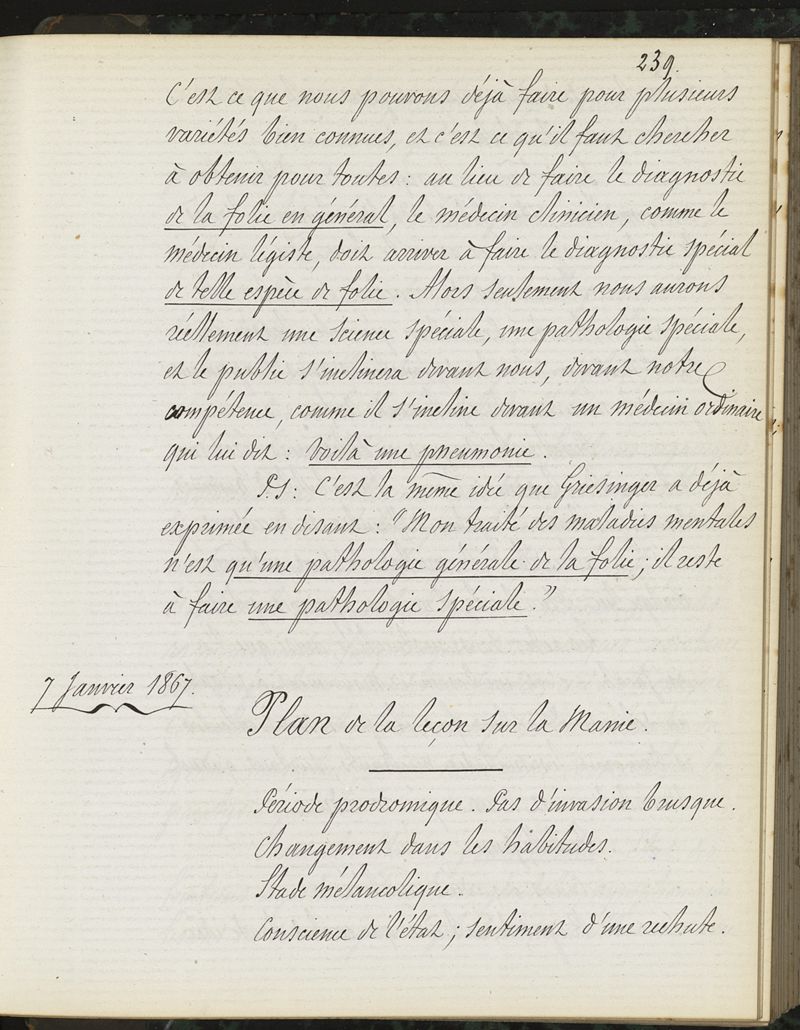 239.
C'est ce que nous pouvons déjà faire pour plusieurs
variétés bien connues, et c'est ce qu'il faut chercher
à obtenir pour toutes : au lieu de faire le diagnostic
de la folie en général, le médecin clinicien, comme le
médecin légiste, doit arriver à faire le diagnostic spécial
de telle espèce de folie. Alors seulement nous aurons
réellement une science spéciale, une pathologie spéciale,
et le public s'inclinera devant nous, devant notre
compétence, comme il s'incline devant un médecin ordinaire
qui lui dit : voilà une pneumonie.
P.S : C'est la même idée que Griesinger a déjà
exprimée en disant : "Mon traité des maladies mentales
n'est qu'une pathologie générale de la folie ; il reste
à faire une pathologie spéciale."
7 Janvier 1867.
Plan de la leçon sur la Manie.
Période prodromique. Pas d'invasion brusque.
Changement dans les habitudes.
Stade mélancolique.
Conscience de l'état ; sentiment d'une rechute.